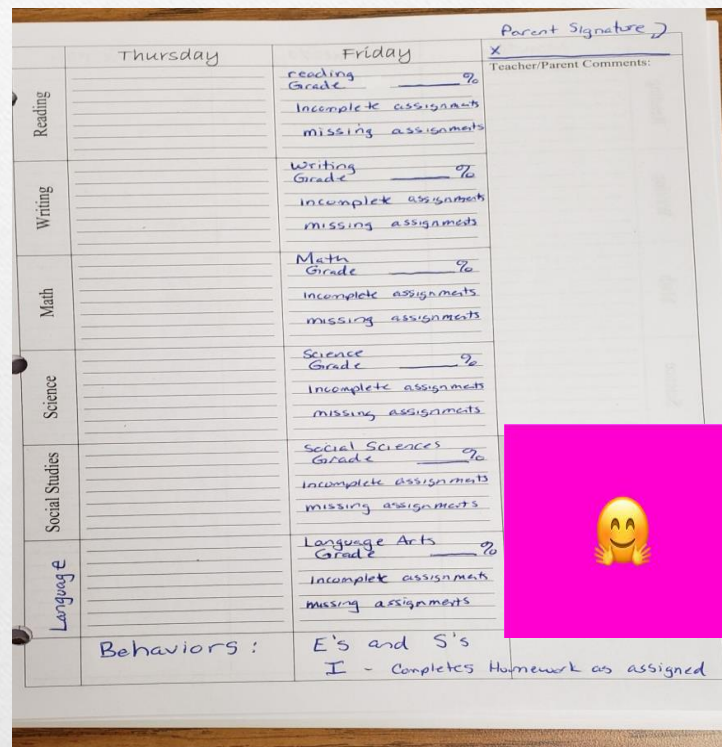 Parent Signature
Thursday
Friday
X
Teacher/Parent Comments:
Reading
reading
Grade ______%
Incomplete assignments
missing assignments
Writing
Writing
Grade ______%
incomplete assignments
missing assignments
Math
Math
Grade ______%
incomplete assignments
missing assignments
Science
Science
Grade ______%
Incomplete assignments
missing assignments
Social Studies
Social Sciences
Grade ______%
incomplete assignments
missing assignments
Language
Language Arts
Grade ______%
Incomplete assignments
missing assignments
Behaviors :
E's and S's
I - Completes Homework as assigned